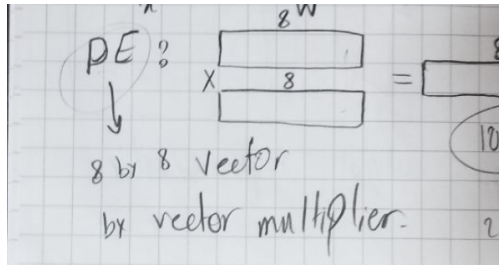 8 W
PE ?
X 8 =
8
10
8 by 8 vector
by vector multiplier.
2